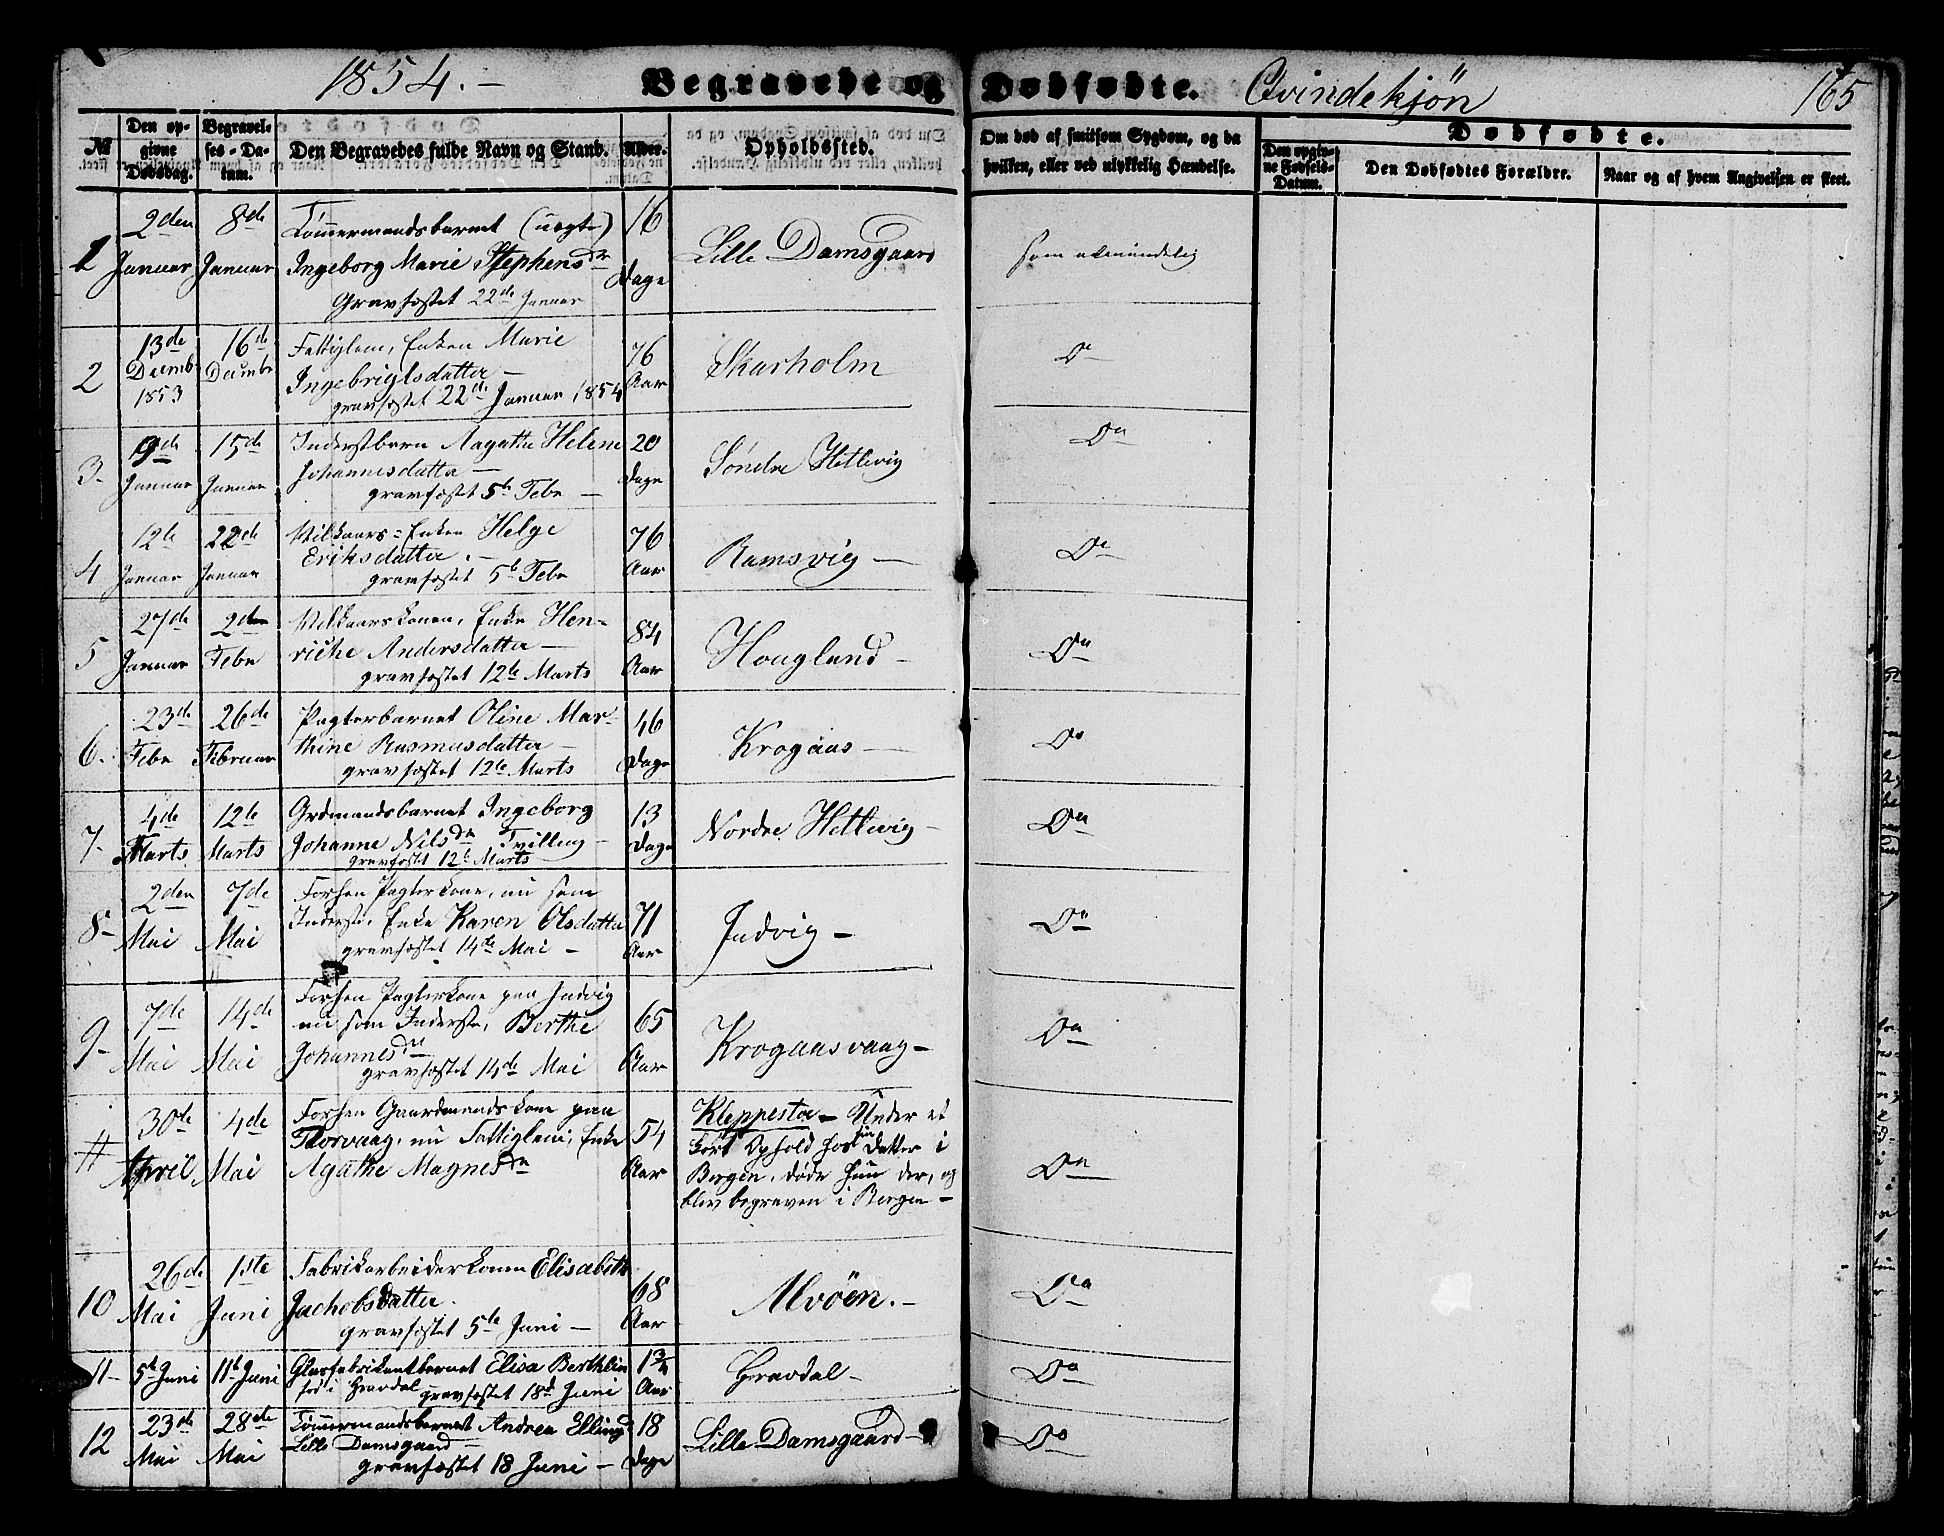 1854. –
Begravede og Dødfødte. Qvindekjön
165
№
Den opgivne Dødsdag.
Begravelses-Datum.
Den Begravedes fulde Navn og Stand.
Alder.
Opholdssted.
Om død af smitsom Sygdom, og da hvilken, eller ved ulykkelig Hændelse.
Dødfødte.
Den opgivne Fødsels-Datum.
Den Dødfødtes Forældre.
Naar og af hvem Angivelsen er skeet.
1
2den Januar
8de Januar
Tömmermandsbarnet (uægte)
Ingeborg Marie Stephensdr
Gravfæstet 22de Januar
16 Dage
Lille Damsgaard
som almindelig
2
13de Decmbr 1853
16de Decmbr
Fattiglem, Enken Marie
Ingebrigtsdatter –
gravfæstet 22de Januar 1854
76 Aar
Skarholm
Do
3.
9de Januar
15de Januar
Inderstbarn Aagathe Helene
Johannesdatter –
gravfæstet 5te Febr –
20 Dage
Søndre Hetlevig
Do
4
12te Januar
22de Januar
Vilkaars-Enken Helge
Eriksdatter. –
gravfæstet 5te Febr
76 Aar
Ramsvig –
Do
5
27de Januar
2den Febr
Vilkaarskonen, Enke Hen-
riche Andersdatter –
gravfæstet 12te Marts
84 Aar
Hougland –
Do
6.
23de Febr
26de Februar
Pagterbarnet Oline Mar-
thine Rasmusdatter –
gravfæstet 12te Marts
46 Dage
Krogaas –
Do
7.
4de Marts
12te Marts
Grdmandsbarnet Ingeborg
Johanne Nilsdr Tvilling –
gravfæstet 12te Marts
13 Dage
Nordre Hetlevig –
Do
8 –
2den Mai
7de Mai
Forhen Pagterkone, nu som
Inderste, Enke Karen Olsdatter
gravfæstet 14de Mai –
71 Aar
Judvig –
Do
9 –
7de Mai
14de Mai
Forhen Pagterkone paa Judvig
nu som Inderste, Berthe
Johannesdr
gravfæstet 14de Mai
65 Aar
Krogaasvaag –
Do
30de April
4de Mai
Forhen Gaardmandskone paa
Thorvaag, nu Fattiglem, Enke
Agathe Magnesdr
54 Aar
Kleppestø – Under et
kort Ophold hos sin Datter i
Bergen, døde hun der, og
blev begraven i Bergen –
Do
10
26de Mai
1ste Juni
Fabrikarbeiderkonen Elisabeth
Jachobsdatter.
gravfæstet 5te Juni –
68 Aar
Alvöen. –
Do
11 –
5te Juni
11te Juni
Glasfabrikantbarnet Elisa Berthlin
fød i Gravdal gravfæstet 18de Juni
1¾ Aar
Gravdal –
Do
12
23de Mai
28de Mai
Tömmermandsbarnet Andrea Ellingd
Lille Damsgaard –
gravfæstet 18 Juni –
18 Dage
Lille Damsgaard –
Do